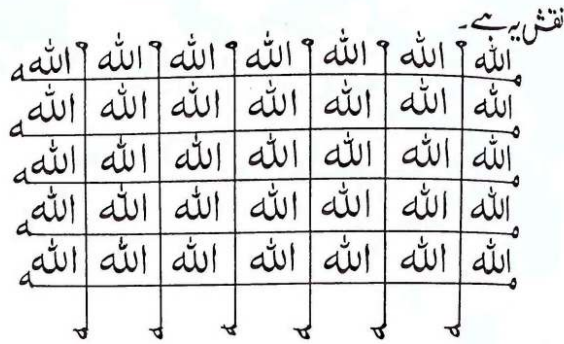 نقش یہ ہے۔
اللہ اللہ اللہ اللہ اللہ اللہ اللہ
اللہ اللہ اللہ اللہ اللہ اللہ اللہ
اللہ اللہ اللہ اللہ اللہ اللہ اللہ
اللہ اللہ اللہ اللہ اللہ اللہ اللہ
اللہ اللہ اللہ اللہ اللہ اللہ اللہ